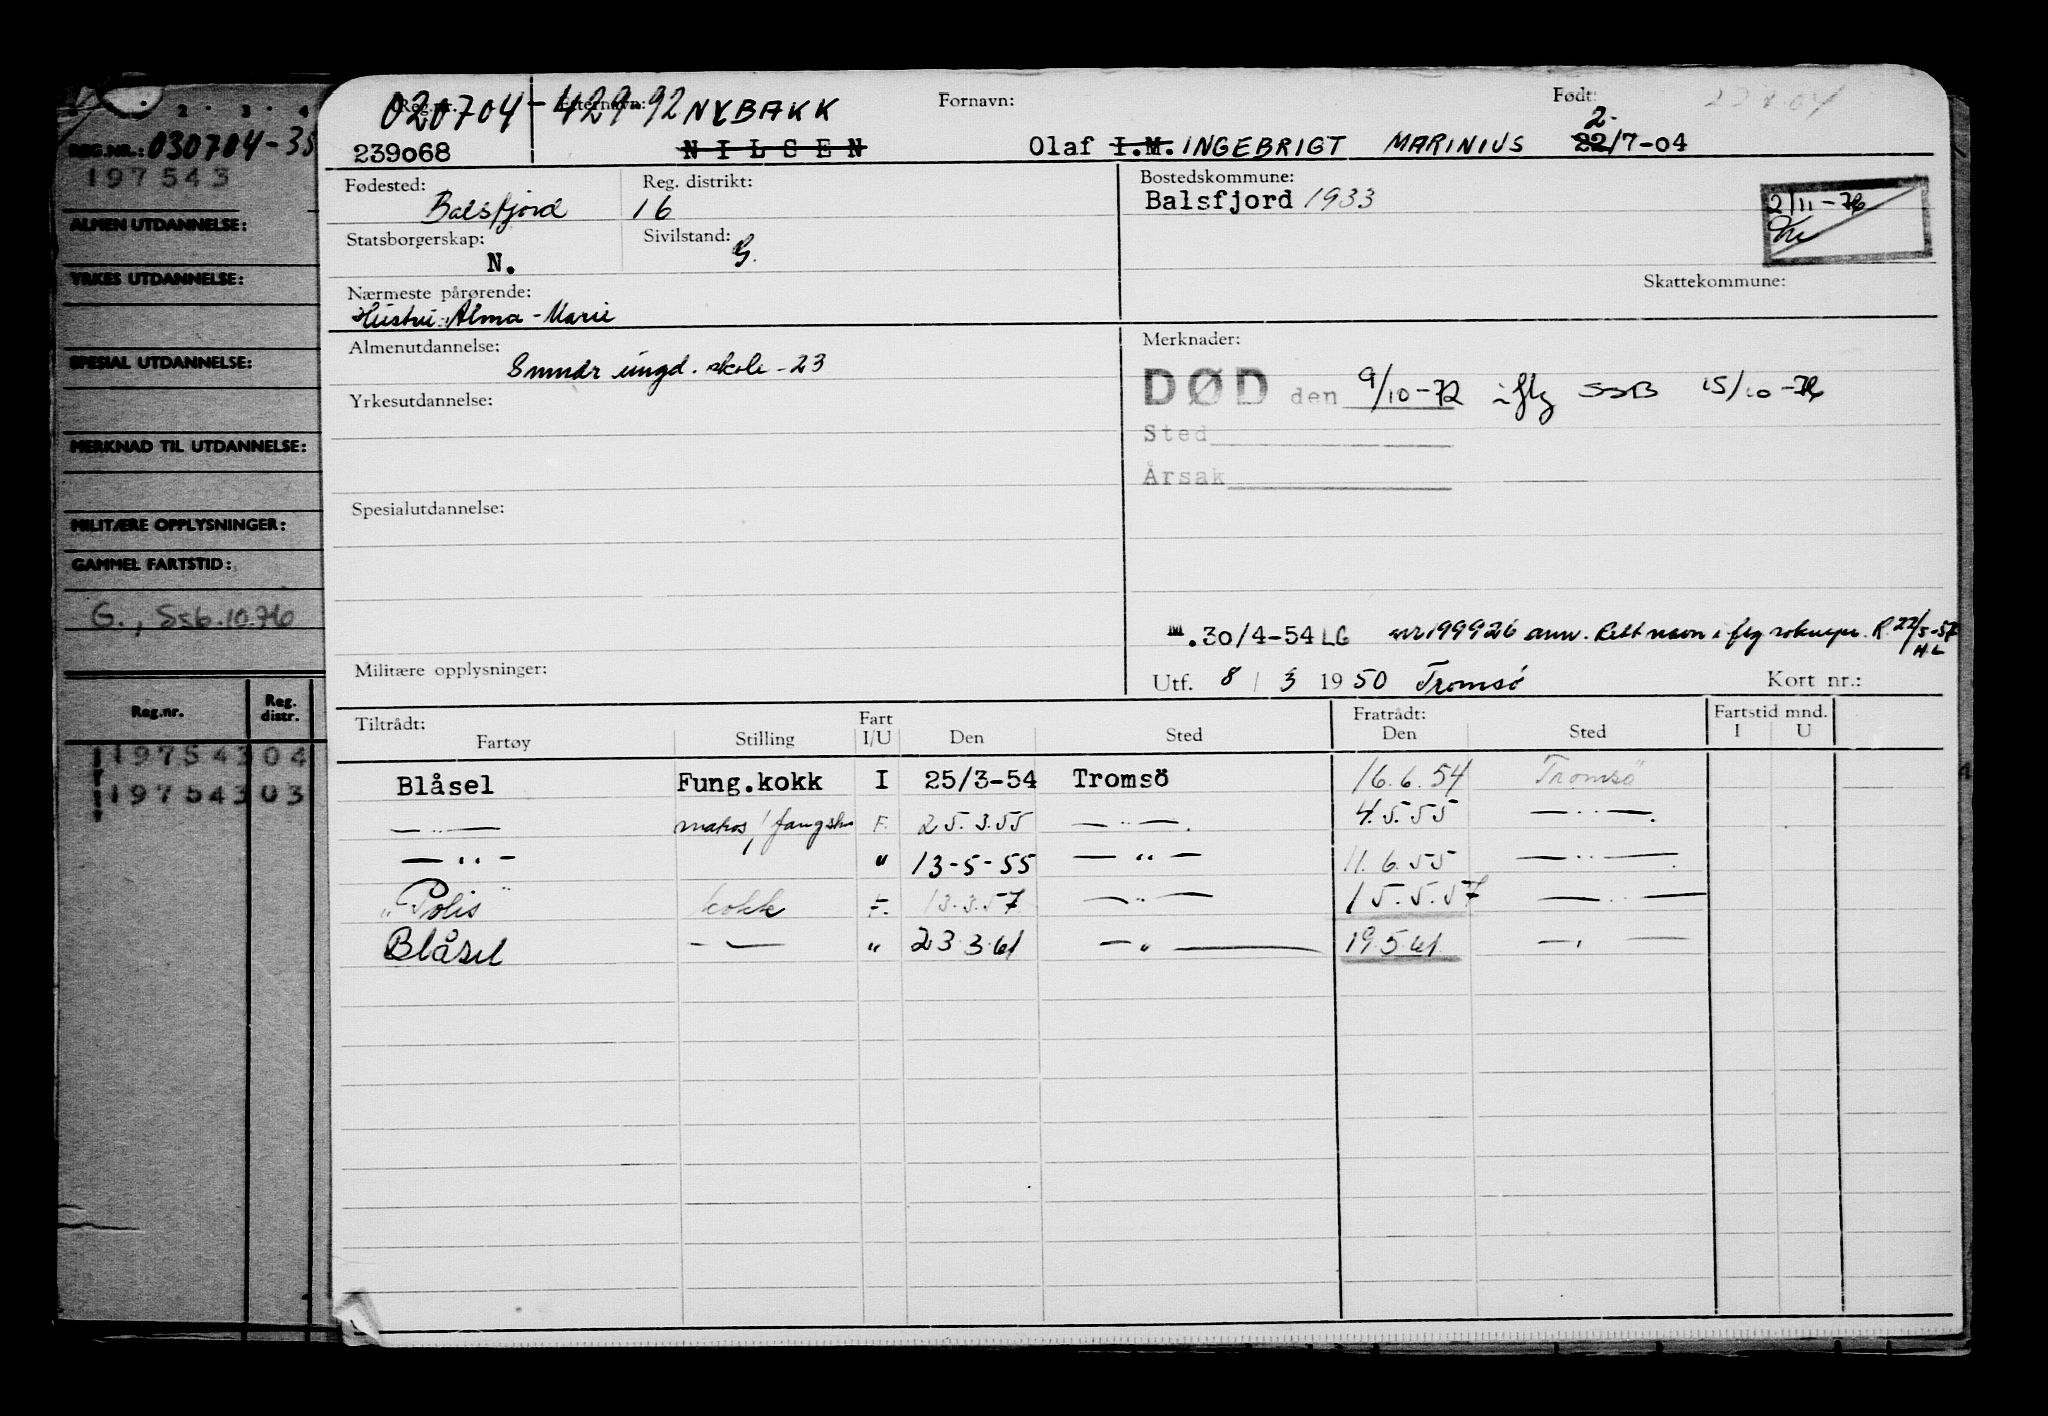 2 · 3 · 4
REG.NR.: 030704-35
197543
ALMEN UTDANNELSE:
YRKES UTDANNELSE:
SPESIAL UTDANNELSE:
MERKNAD TIL UTDANNELSE:
MILITÆRE OPPLYSNINGER:
GAMMEL FARTSTID:
G., Ssb. 10.76
Reg.nr. Reg. distr.
197543 04
197543 03
Reg.nr. Etternavn: Fornavn: Født:
020704-42992 NYBAKK 2.
239o68 NILSEN Olaf I.M. INGEBRIGT MARINIUS 22/7-04
Fødested: Reg. distrikt: Bostedskommune:
Balsfjord 16 Balsfjord 1933
2/11-76
Statsborgerskap: Sivilstand:
N. G.
Skattekommune:
Nærmeste pårørende:
Hustru: Alma-Marie
Almenutdannelse: Merknader:
ungd. skole -23
DØD den 9/10-72 iflg SSB 15/10-76
Yrkesutdannelse:
Sted
Årsak
Spesialutdannelse:
M.30/4-54 LG nr 199926 ann. Rett navn i flg R. 22/5-57
H.L
Militære opplysninger: Utf. 8 / 3 1950 Tromsø Kort nr.:
Tiltrådt: Fart Fratrådt: Fartstid mnd.
Fartøy Stilling I/U Den Sted Den Sted I U
Blåsel Fung.kokk I 25/3-54 Tromsö 16.6.54 Tromsö
— ·· — matros/fangstm F. 25.3.55 — ·· —. 4.5.55 — ·· —.
— ·· — " 13-5-55 — ·· — 11.6.55 — ·· —.
"Polis" kokk F. 13.3.57 — ·· — 15.5.57 — ·· —
Blåsel — — " 23.3.61 — " — 19.5.61 — · —